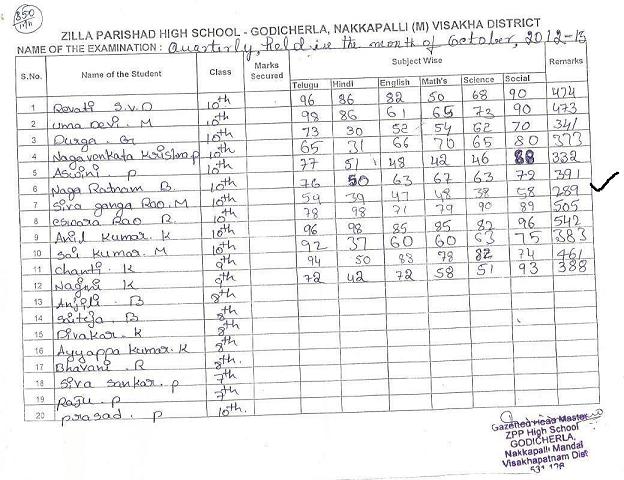 850
ZILLA PARISHAD HIGH SCHOOL - GODICHERLA, NAKKAPALLI (M) VISAKHA DISTRICT
NAME OF THE EXAMINATION : Quarterly, held in the month of October, 2012-13
S.No. Name of the Student Class Marks Secured Subject Wise Remarks
Telugu Hindi English Math's Science Social
1 Revati S.V.D 10th 96 86 82 50 68 90 474
2 Uma Devi. M 10th 98 86 61 65 73 90 473
3 Durga. G 10th 73 30 52 54 62 70 341
4 Nagavenkata Krishna P 10th 65 31 66 70 65 80 373
5 Aswini P 10th 77 51 48 42 46 68 332
6 Naga Ratnam B. 10th 76 50 63 67 63 72 391
7 Siva ganga Rao. M 10th 59 39 47 48 38 58 289
8 eswara Rao R. 10th 78 98 71 79 90 89 505
9 Anil Kumar. K 10th 96 98 85 85 82 96 542
10 Sai Kumar. M 10th 92 37 60 60 63 75 383
11 Chanti. K 9th 94 50 83 78 82 74 461
12 Nagini K 9th 72 42 72 58 51 93 388
13 Anjili. B 8th
14 Sriteja. B 8th
15 Divakar. K 8th
16 Ayyappa Kumar. K 8th
17 Bhavani. R 8th.
18 Siva Sankar. P 7th
19 Raju. P 7th
20 Prasad. P 10th.
Gazetted Head Master
ZPP High School
GODICHERLA,
Nakkapalli Mandal
Visakhapatnam Dist
531 126